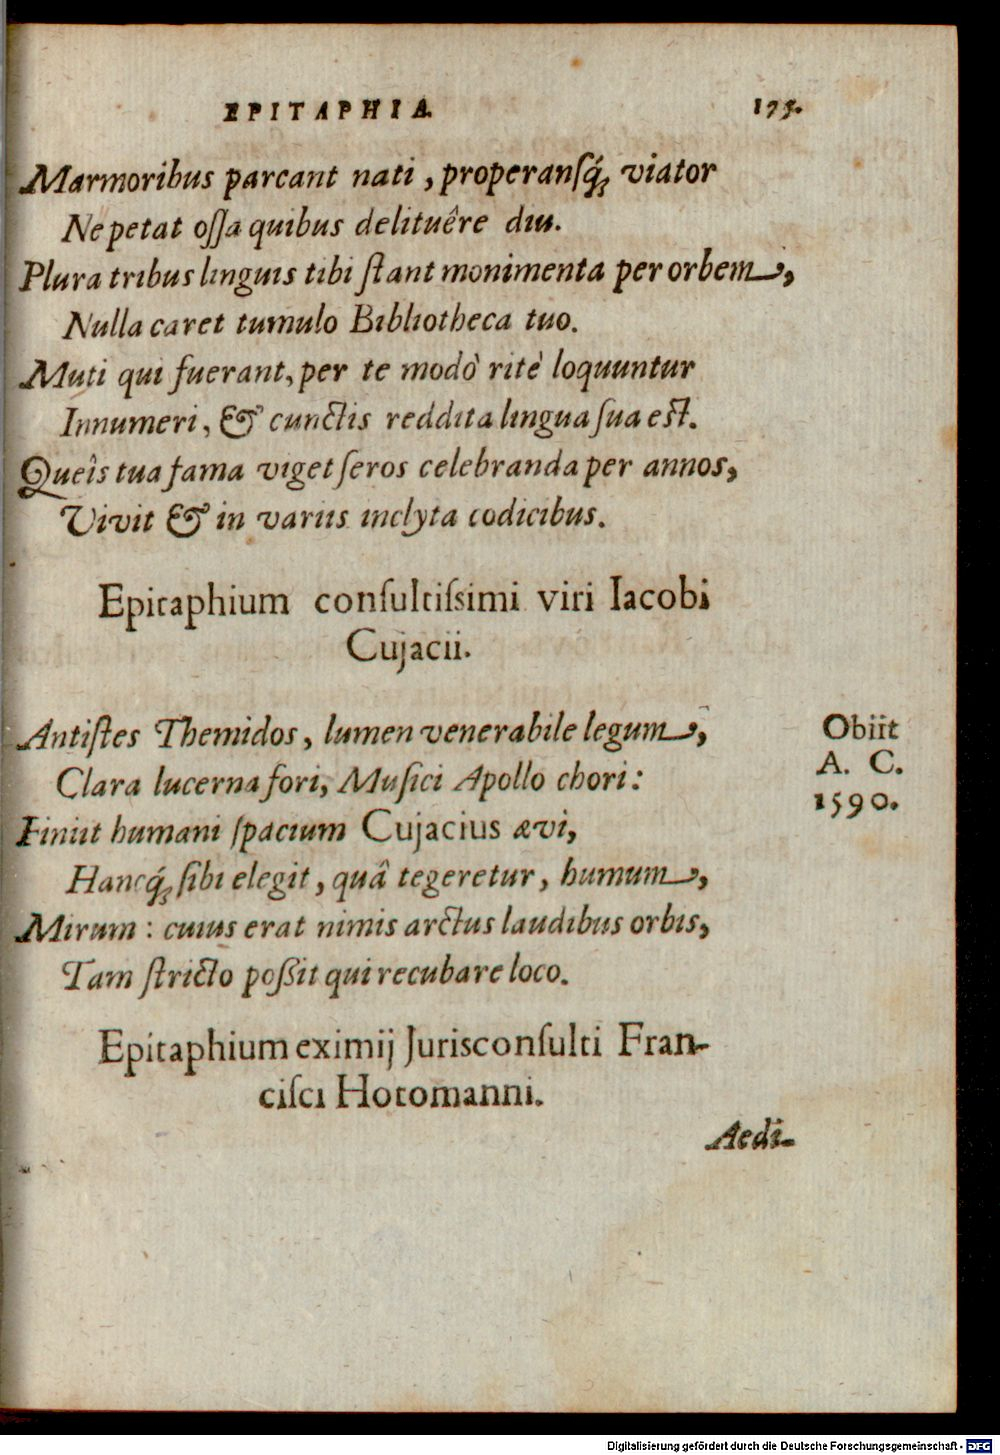 EPITAPHIA. 175.
Marmoribus parcant nati, properansq́; viator
Ne petat ossa quibus delituêre diu.
Plura tribus linguis tibi stant monimenta per orbem,
Nulla caret tumulo Bibliotheca tuo.
Muti qui fuerant, per te modò ritè loquuntur
Innumeri, & cunctis reddita lingua sua est.
Queîs tua fama viget seros celebranda per annos,
Vivit & in variis inclyta codicibus.
Epitaphium consultissimi viri Iacobi
Cujacii.
Antistes Themidos, lumen venerabile legum,
Clara lucerna fori, Musici Apollo chori:
Finiit humani spacium Cujacius ævi,
Hancq́; sibi elegit, quâ tegeretur, humum,
Mirum: cuius erat nimis arctus laudibus orbis,
Tam stricto possit qui recubare loco.
Obiit
A. C.
1590.
Epitaphium eximij Jurisconsulti Fran-
cisci Hotomanni.
Aedi-
Digitalisierung gefördert durch die Deutsche Forschungsgemeinschaft - DFG